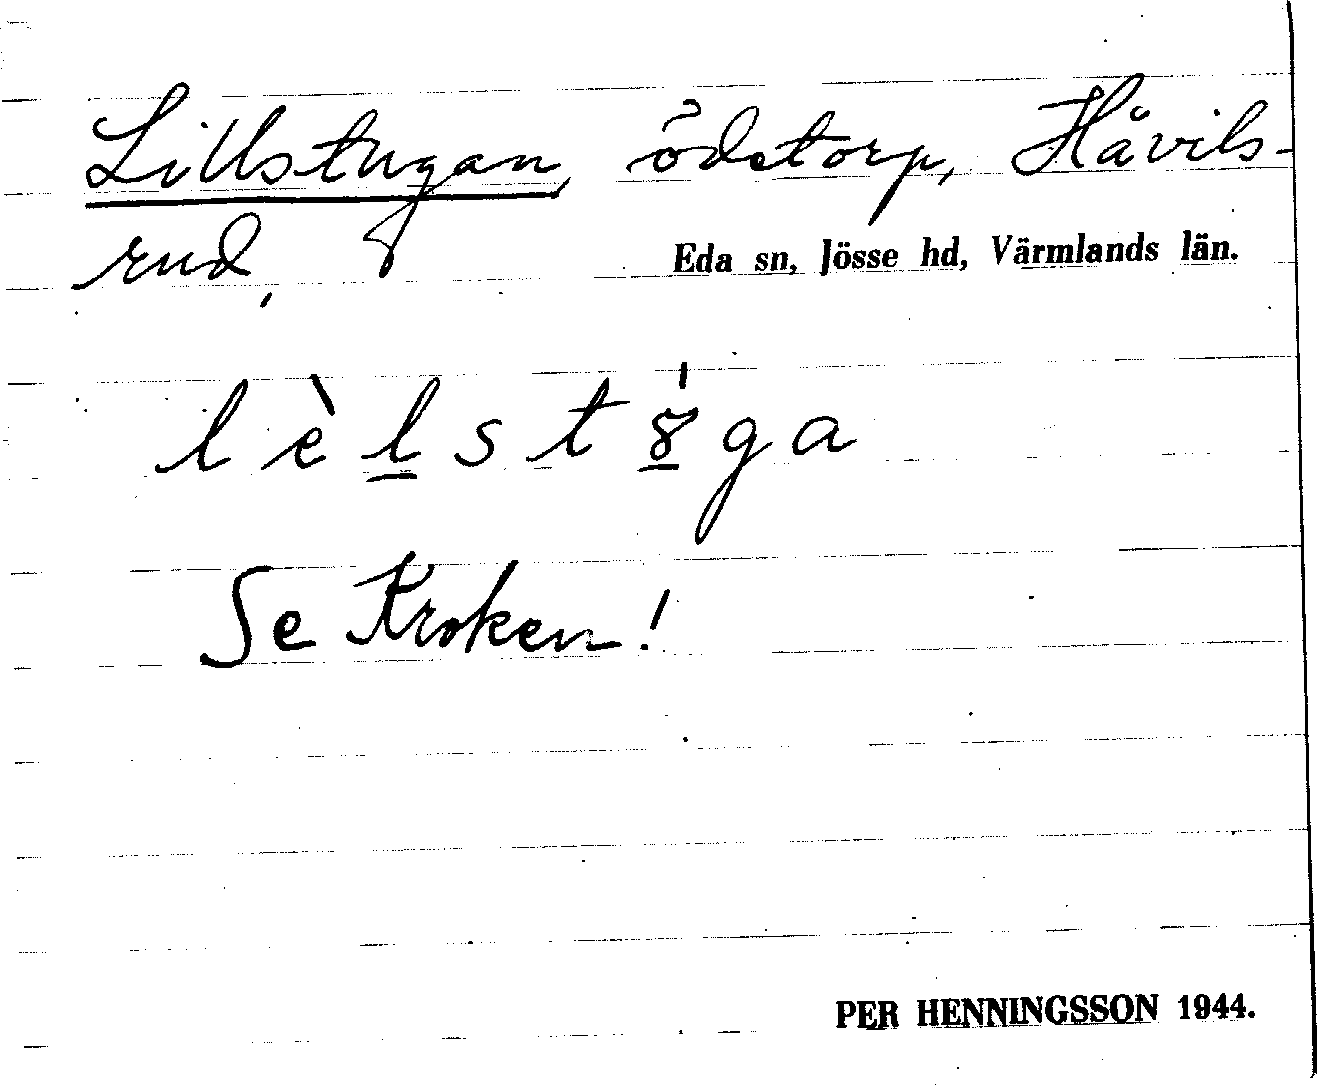 Lillstugan, ödetorp, Håvils-
rud,
Eda sn, Jösse hd, Värmlands län.
lèl̲stȣ̲́ga
Se Kroken!
PER HENNINGSSON 1944.